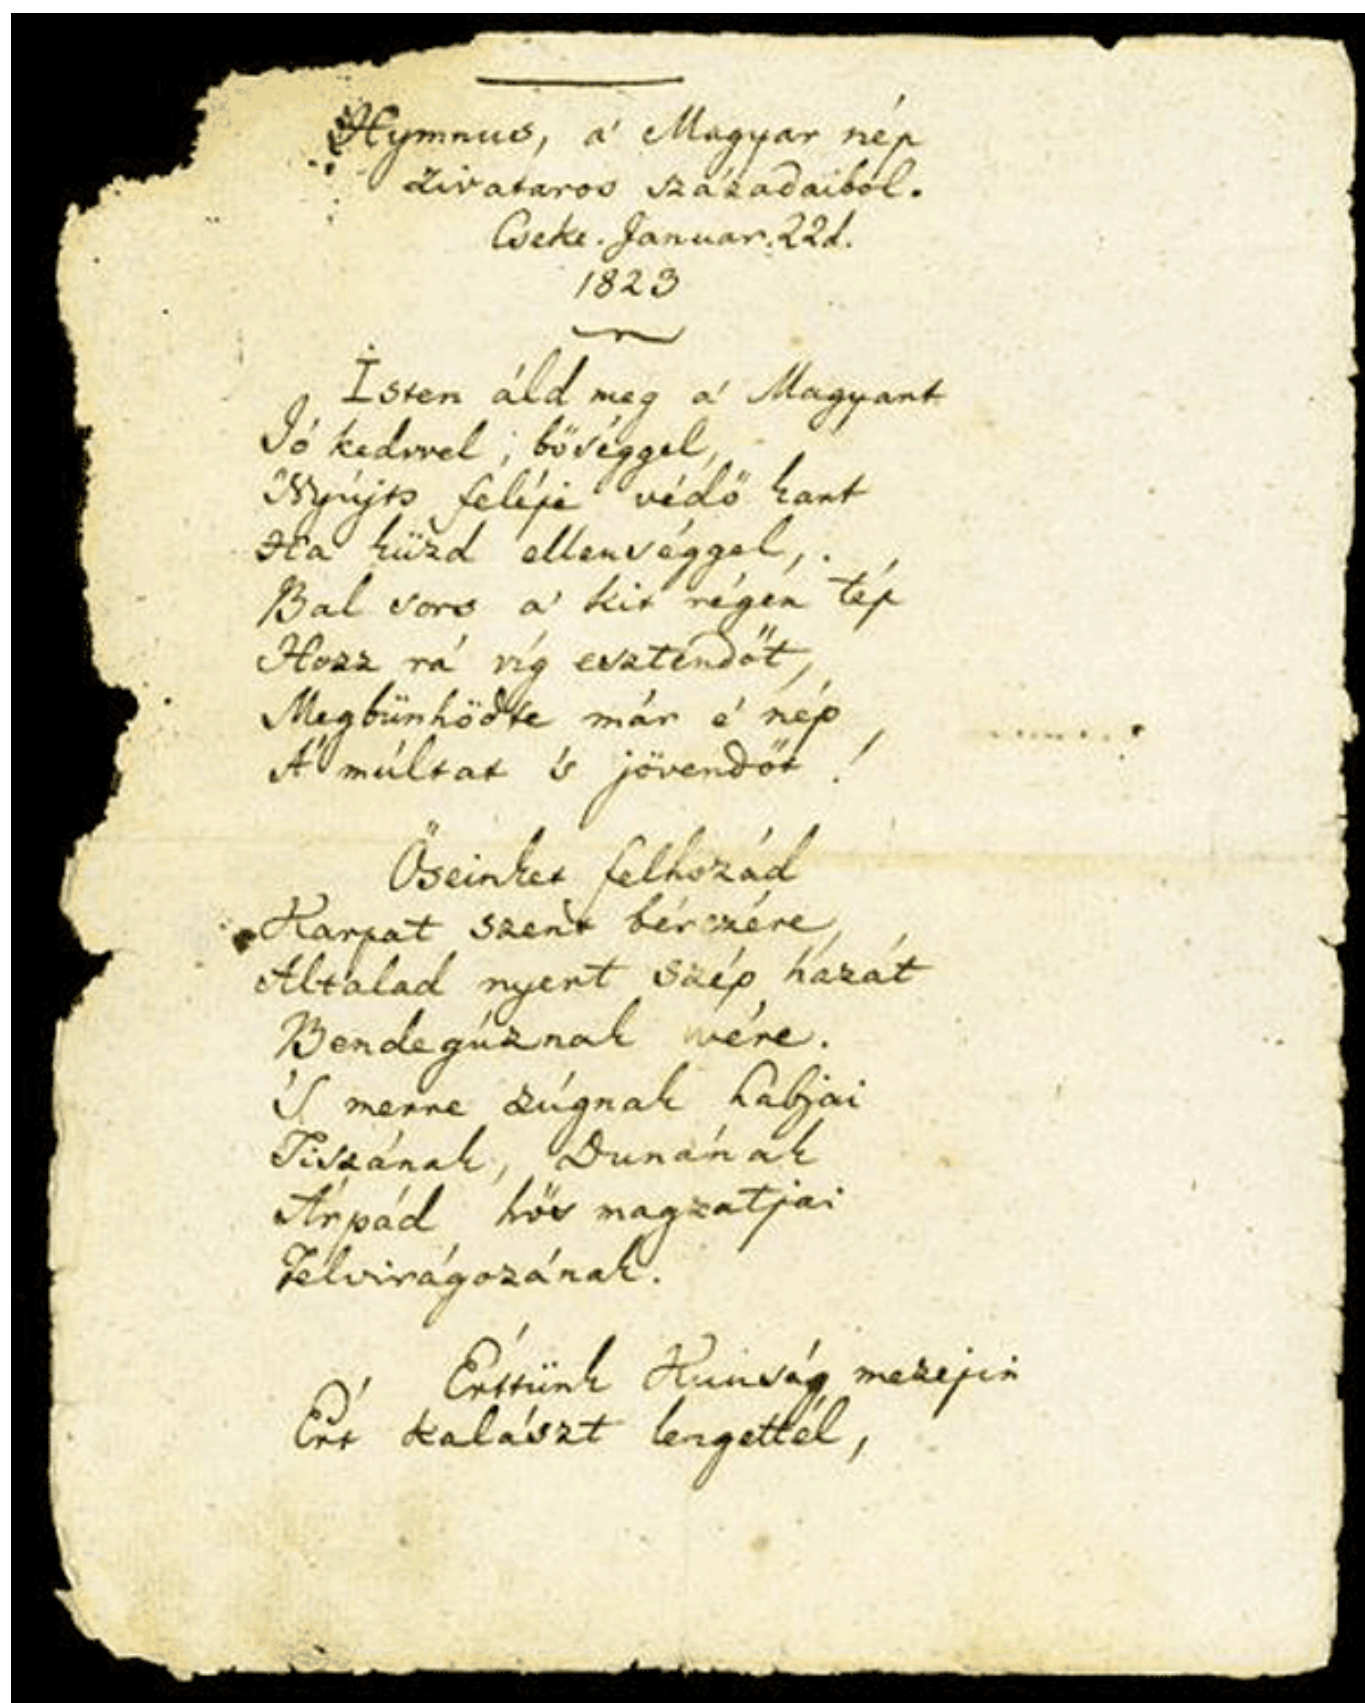 Hymnus, a' Magyar nép
zivataros századaiból.
Cseke. Januar. 22d.
1823
Isten áld meg a' Magyart
Jó kedvvel, bőséggel,
Nyújts feléje védő kart
Ha küzd ellenséggel,
Bal sors a' kit régen tép
Hozz rá víg esztendőt,
Megbünhödte már e' nép
A' múltat 's jövendőt!
Őseinket felhozád
Karpat szent bérczére
Általad nyert szép hazát
Bendegúznak vére.
'S merre zúgnak habjai
Tiszának, Dunának
Árpád hős magzatjai
Felvirágozának.
Értünk Kunság mezején
Ért kalászt lengettél,